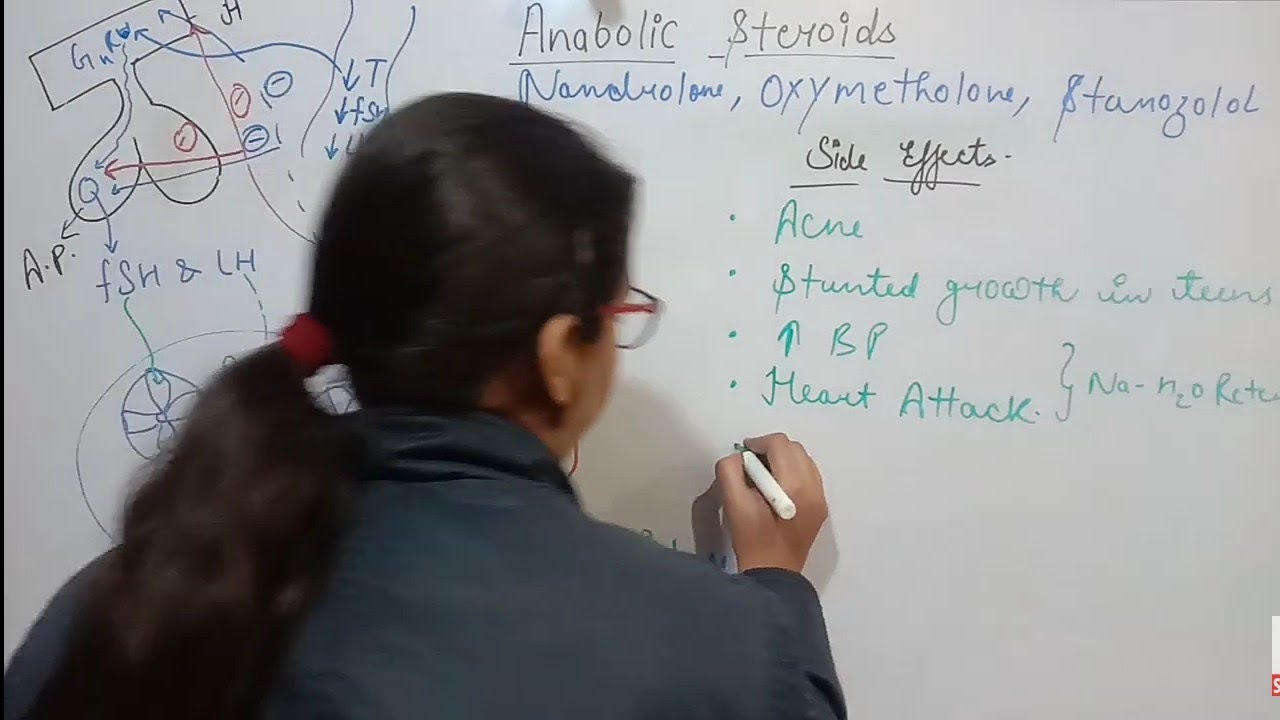 Anabolic Steroids
Nandrolone, Oxymetholone, Stanozolol
Side Effects.
• Acne
• Stunted growth in teens
• ↑ BP
• Heart Attack. } Na-H2O Rete
H
GnRH
↓ T
↓ fSH
↓ L
A.P.
fSH & LH